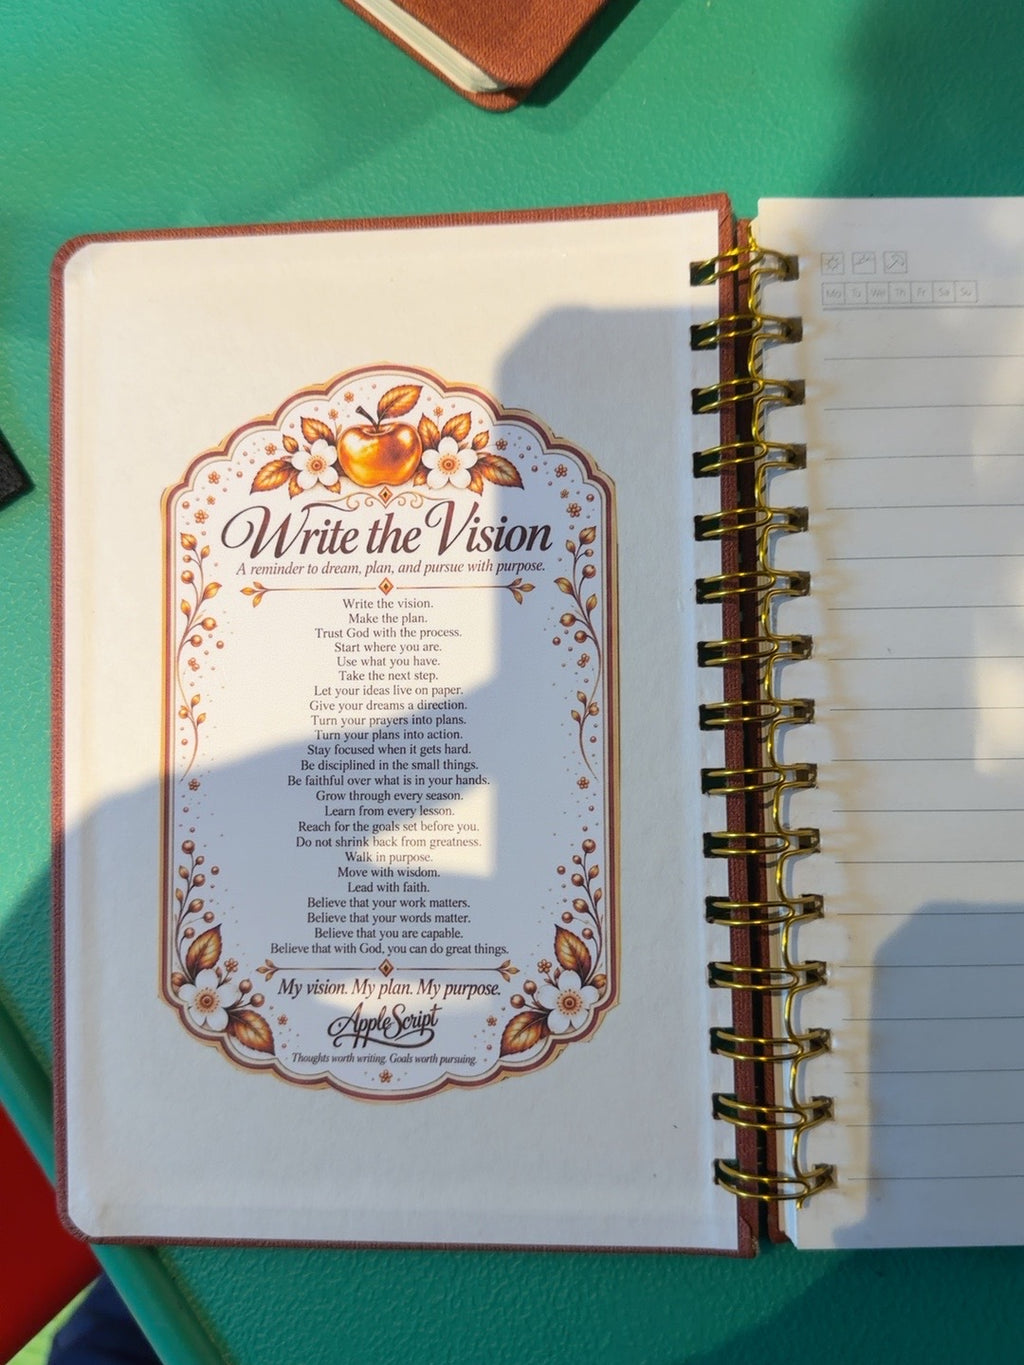 Write the Vision
A reminder to dream, plan, and pursue with purpose.
Write the vision.
Make the plan.
Trust God with the process.
Start where you are.
Use what you have.
Take the next step.
Let your ideas live on paper.
Give your dreams a direction.
Turn your prayers into plans.
Turn your plans into action.
Stay focused when it gets hard.
Be disciplined in the small things.
Be faithful over what is in your hands.
Grow through every season.
Learn from every lesson.
Reach for the goals set before you.
Do not shrink back from greatness.
Walk in purpose.
Move with wisdom.
Lead with faith.
Believe that your work matters.
Believe that your words matter.
Believe that you are capable.
Believe that with God, you can do great things.
My vision. My plan. My purpose.
AppleScript
Thoughts worth writing. Goals worth pursuing.
Mo Tu We Th Fr Sa Su